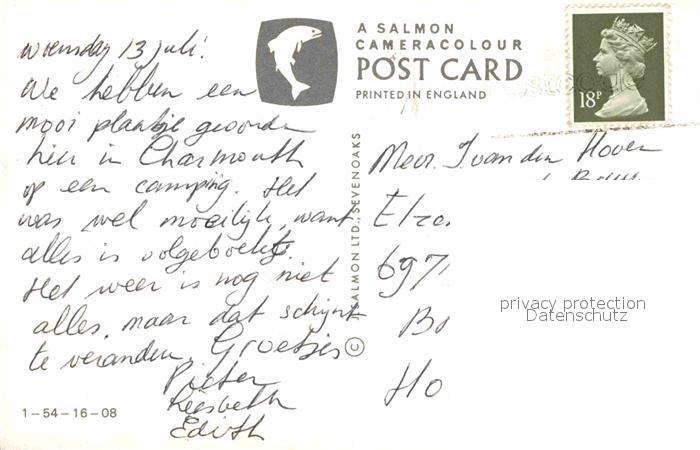 woensdag 13 juli!
We hebben een
mooi plaatsje gevonden
hier in Charmouth
op een camping. Het
was wel moeilijk, want
alles is volgeboekt.
Het weer is nog niet
alles, maar dat schijnt
te veranderen. Groetjes
Pieter
Liesbeth
Edith
1-54-16-08
A SALMON
CAMERACOLOUR
POST CARD
PRINTED IN ENGLAND
J. SALMON LTD., SEVENOAKS ©
18P
Mevr. J. van den Hoven
697
Ho
privacy protection
Datenschutz